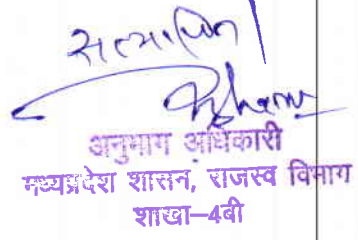 सत्यापित
अनुभाग अधिकारी
मध्यप्रदेश शासन, राजस्व विभाग
शाखा-4बी